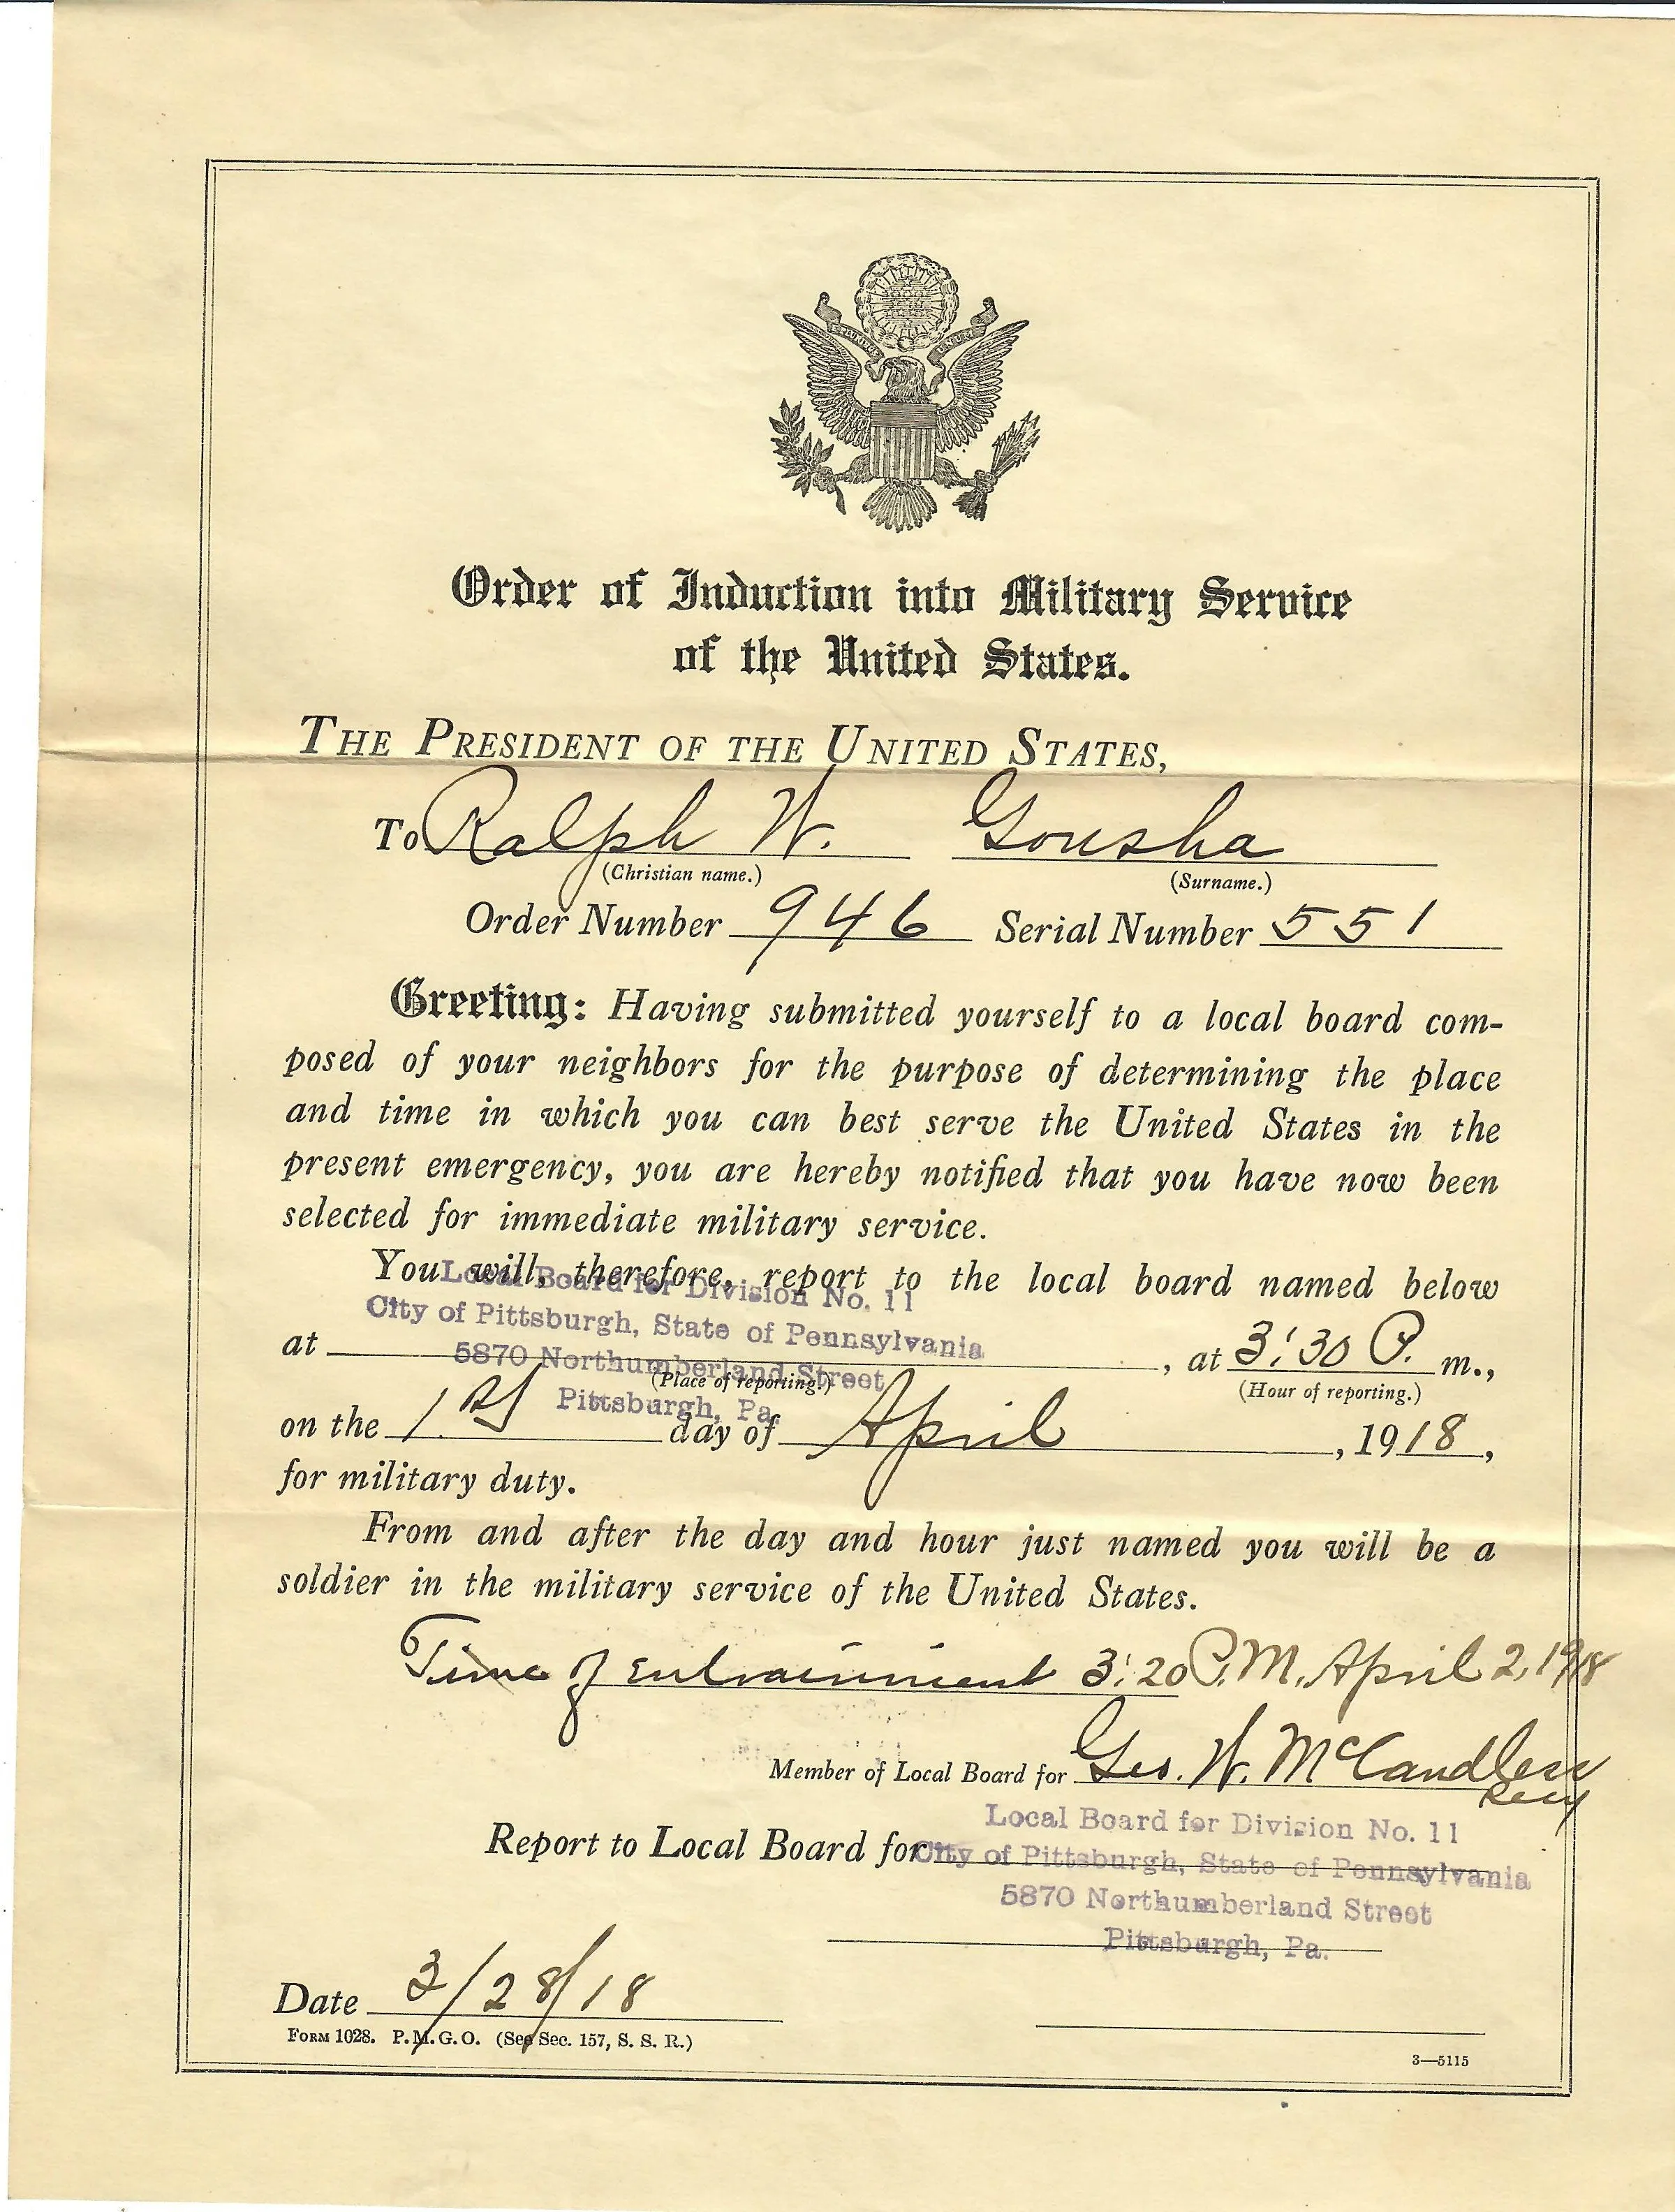 Order of Induction into Military Service
of the United States.
THE PRESIDENT OF THE UNITED STATES,
To Ralph W. Gousha
(Christian name.) (Surname.)
Order Number 946 Serial Number 551
Greeting: Having submitted yourself to a local board com-
posed of your neighbors for the purpose of determining the place
and time in which you can best serve the United States in the
present emergency, you are hereby notified that you have now been
selected for immediate military service.
You will, therefore, report to the local board named below
Local Board for Division No. 11
City of Pittsburgh, State of Pennsylvania
at 5870 Northumberland Street, at 3:30 P. m.,
(Place of reporting.) (Hour of reporting.)
Pittsburgh, Pa.
on the 1st day of April, 1918,
for military duty.
From and after the day and hour just named you will be a
soldier in the military service of the United States.
Time of Entrainment 3:20 P.M. April 2, 1918
Member of Local Board for Geo. W. McCandless
Secy
Local Board for Division No. 11
Report to Local Board for City of Pittsburgh, State of Pennsylvania
5870 Northumberland Street
Pittsburgh, Pa.
Date 3/28/18
FORM 1028. P. M. G. O. (See Sec. 157, S. S. R.)
3—5115